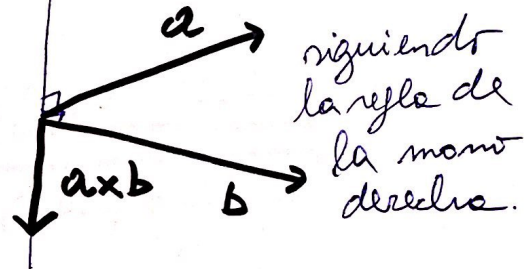 a
siguiendo
la regla de
la mano
derecha.
a×b
b